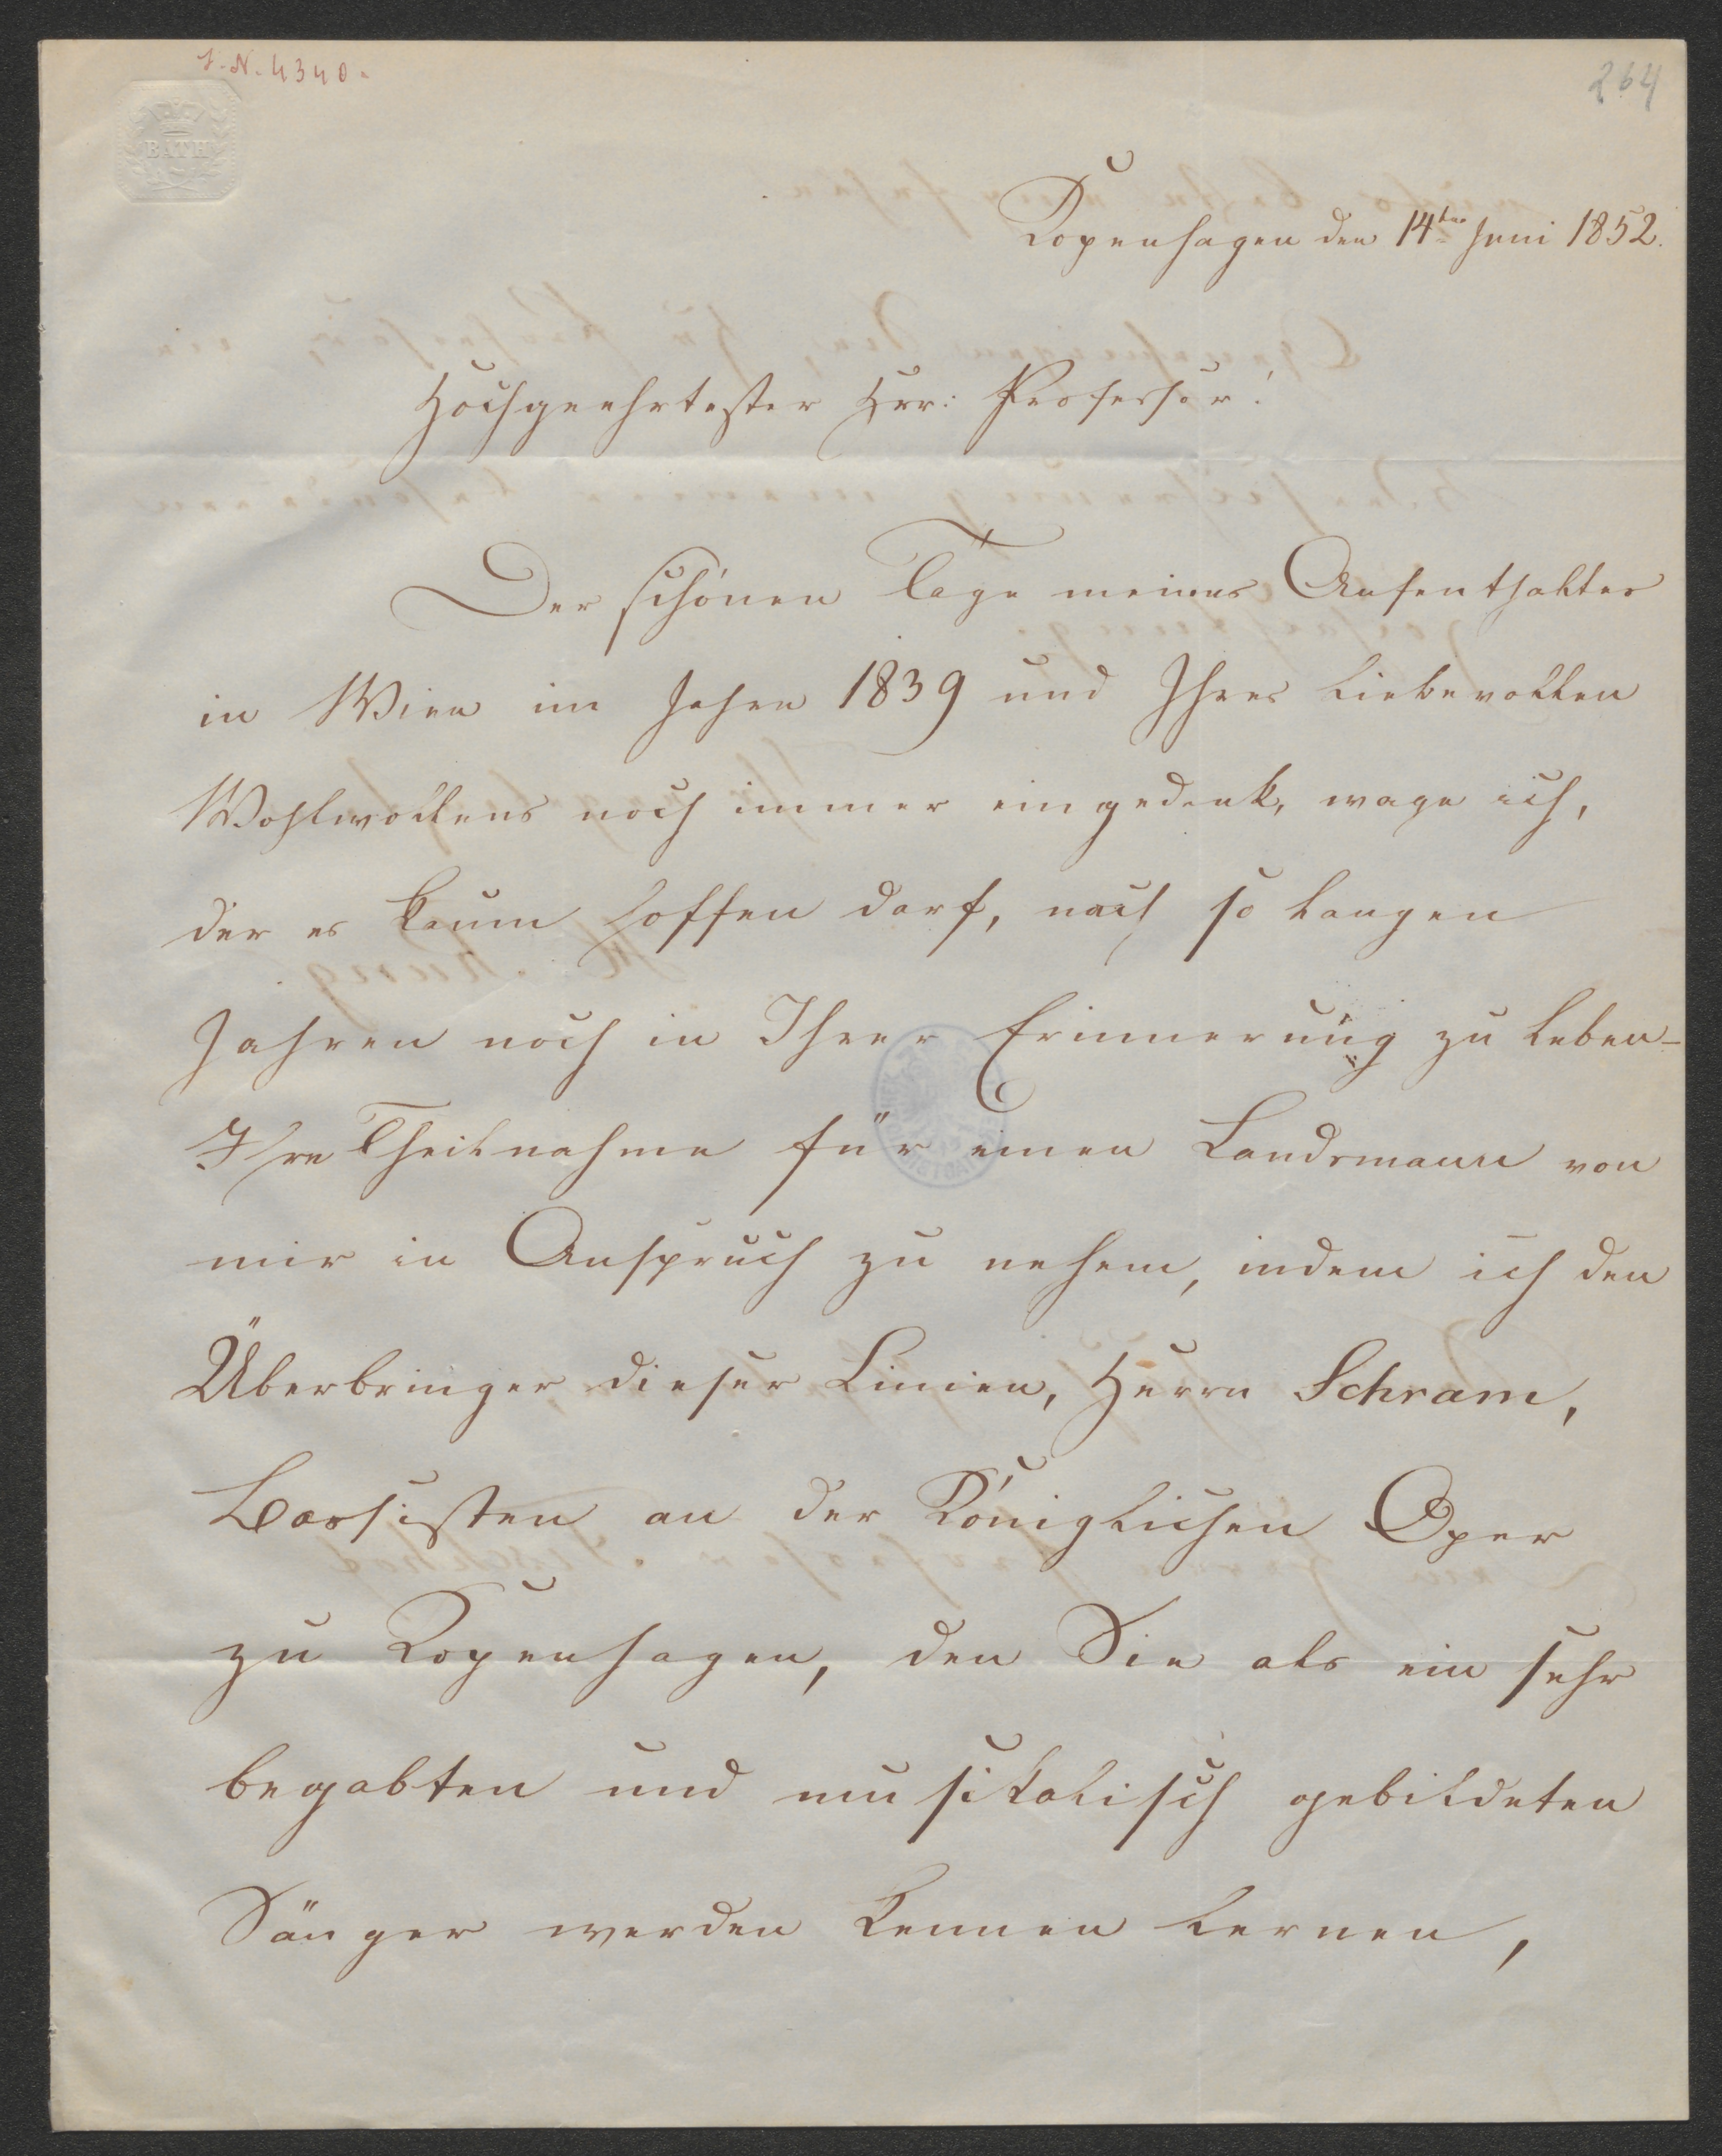 I. N. 4340.
264
BATH
Kopenhagen den 14ten Juni 1852.
Hochgeehrtester Hrr: Professor!
Der schönen Tage meines Aufenthaltes
in Wien im Jahre 1839 und Ihres liebevollen
Wohlwollens noch immer eingedenk, wage ich,
der es kaum hoffen darf, nach so langen
Jahren noch in Ihrer Erinnerung zu leben –
Ihre Theilnahme für einen Landsmann von
mir in Anspruch zu nehem, indem ich den
Überbringer dieser Linien, Herrn Schram,
Bassisten an der Königlichen Oper
zu Kopenhagen, den Sie als ein sehr
begabten und musikalisch gebildeten
Sänger werden kennen lernen,